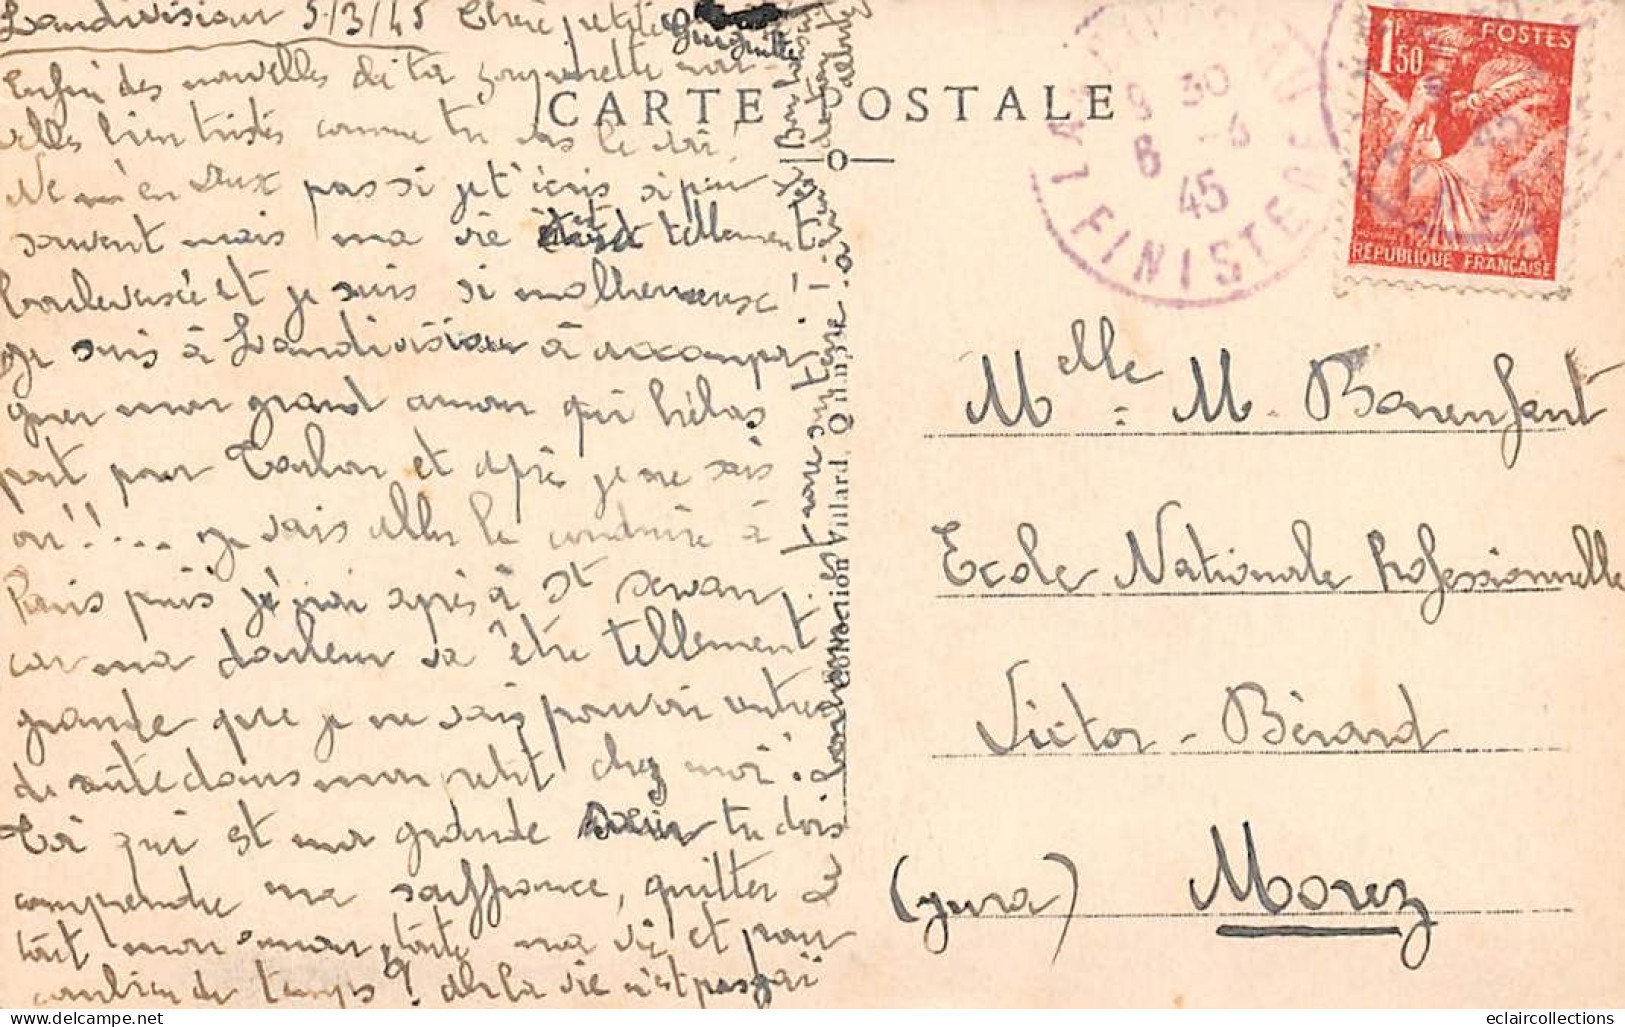 Landivisiau 5/3/45 Chère petite
Enfin des nouvelles de ta
elles bien tristes comme tu vas le voir!
Ne m'en veux pas si je t'écris si peu
souvent mais ma vie est tellement
bouleversée et je suis si malheureuse!
Je suis à Landivisiau à accompa
gner mon grand amour qui hélas
part pour Toulon et après je ne sais
où!!... Je vais aller le conduire à
Paris puis j'irai après à St Servan
car ma douleur va être tellement
grande que je ne vais pouvoir
de suite dans mon petit chez moi!
Toi qui est ma grande tu dois
comprendre ma souffrance, quitter
tout mon amour, toute ma vie et pour
combien de temps? ah la vie n'est pas gaie
CARTE POSTALE
Collection Villard, Quimper
LANDIVISIAU
9 30
6 -3
45
FINISTERE
POSTES
1F50
REPUBLIQUE FRANÇAISE
Melle M. Bonenfant
Ecole Nationale Professionnelle
Victor-Bérard
(Jura) Morez
eclaircollections
www.delcampe.net